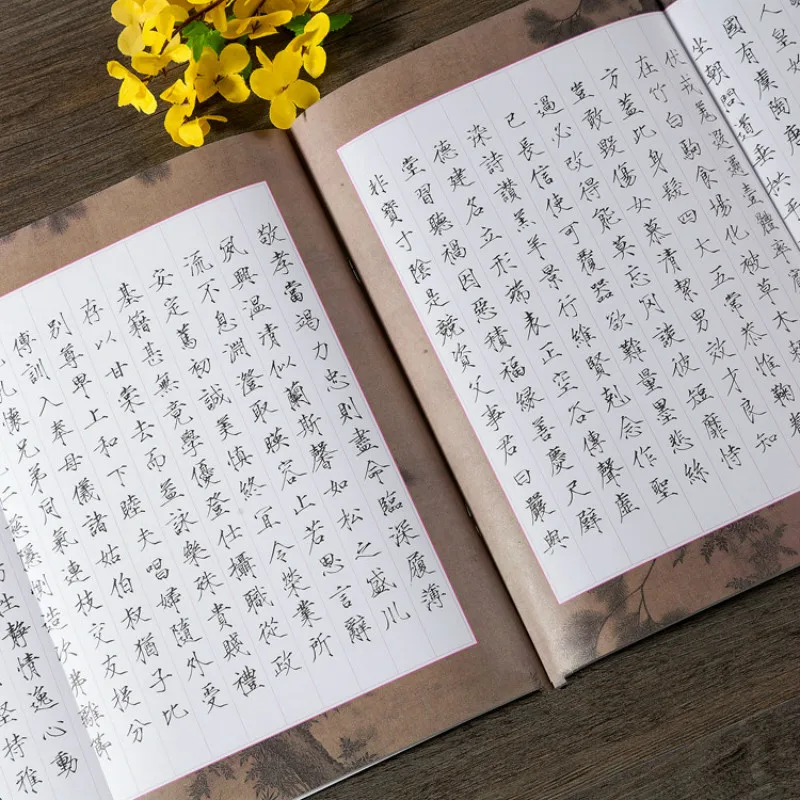 人皇始
國有虞陶唐
坐朝問道垂拱平
伏戎羌遐邇壹體率
在竹白駒食場化被草木賴
方蓋此身髮四大五常恭惟鞠養
豈敢毀傷女慕清絜男效才良知
過必改得能莫忘罔談彼短靡恃
己長信使可覆器欲難量墨悲絲
染詩讚羔羊景行維賢剋念作聖
德建名立形端表正空谷傳聲虛
堂習聽禍因惡積福緣善慶尺璧
非寶寸陰是競資父事君曰嚴與
敬孝當竭力忠則盡命臨深履薄
夙興溫清似蘭斯馨如松之盛川
流不息淵澄取暎容止若思言辭
安定篤初誠美慎終宜令榮業所
基籍甚無竟學優登仕攝職從政
存以甘棠去而益詠樂殊貴賤禮
別尊卑上和下睦夫唱婦隨外受
傅訓入奉母儀諸姑伯叔猶子比
兒懷兄弟同氣連枝交友投分
慈隱惻造次弗離節
性靜情逸心動
堅持雅